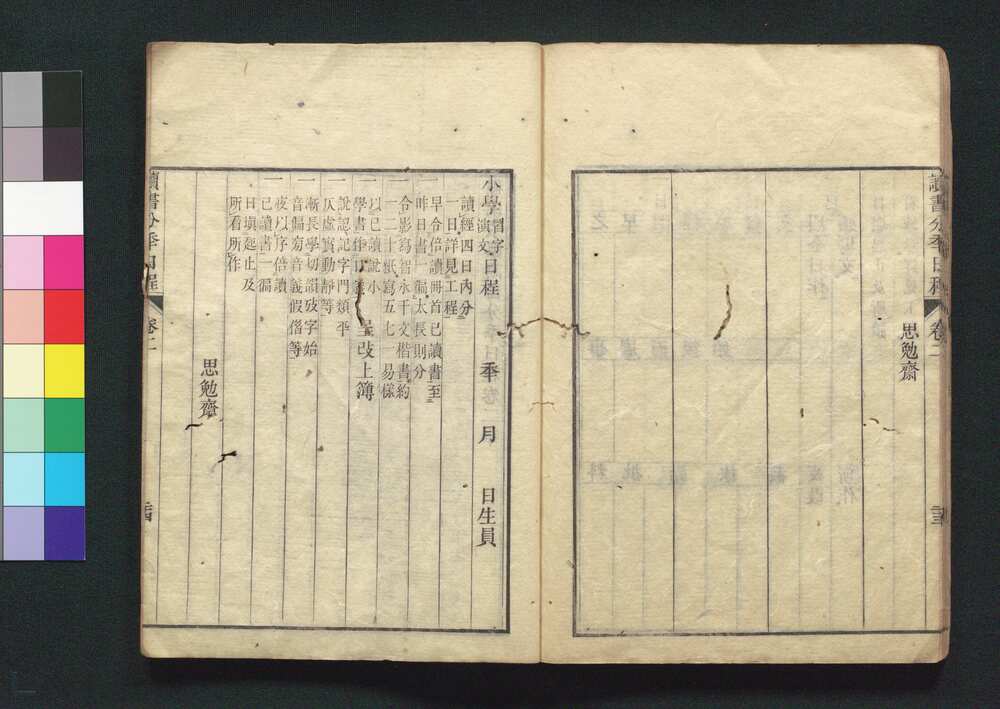 讀書分秊日程 卷二
思勉齋
小學 習字演文 日程 秊 月 日生員
讀經四日內分
一日詳見工程
一 早令倍讀冊首已讀書至
昨日書一徧太長則分
一 令影寫智永千文楷書約
一二十紙寫五七一易樣
一 以已讀說小
學書作口義 呈改上簿
一 說認記字門類平
仄虛實動靜等
一 漸長學切韻攷字始
音偏旁音義假借等
一 夜以序倍讀
已讀書一徧
日塡起止及
所看所作
思勉齋
讀書分秊日程 卷二